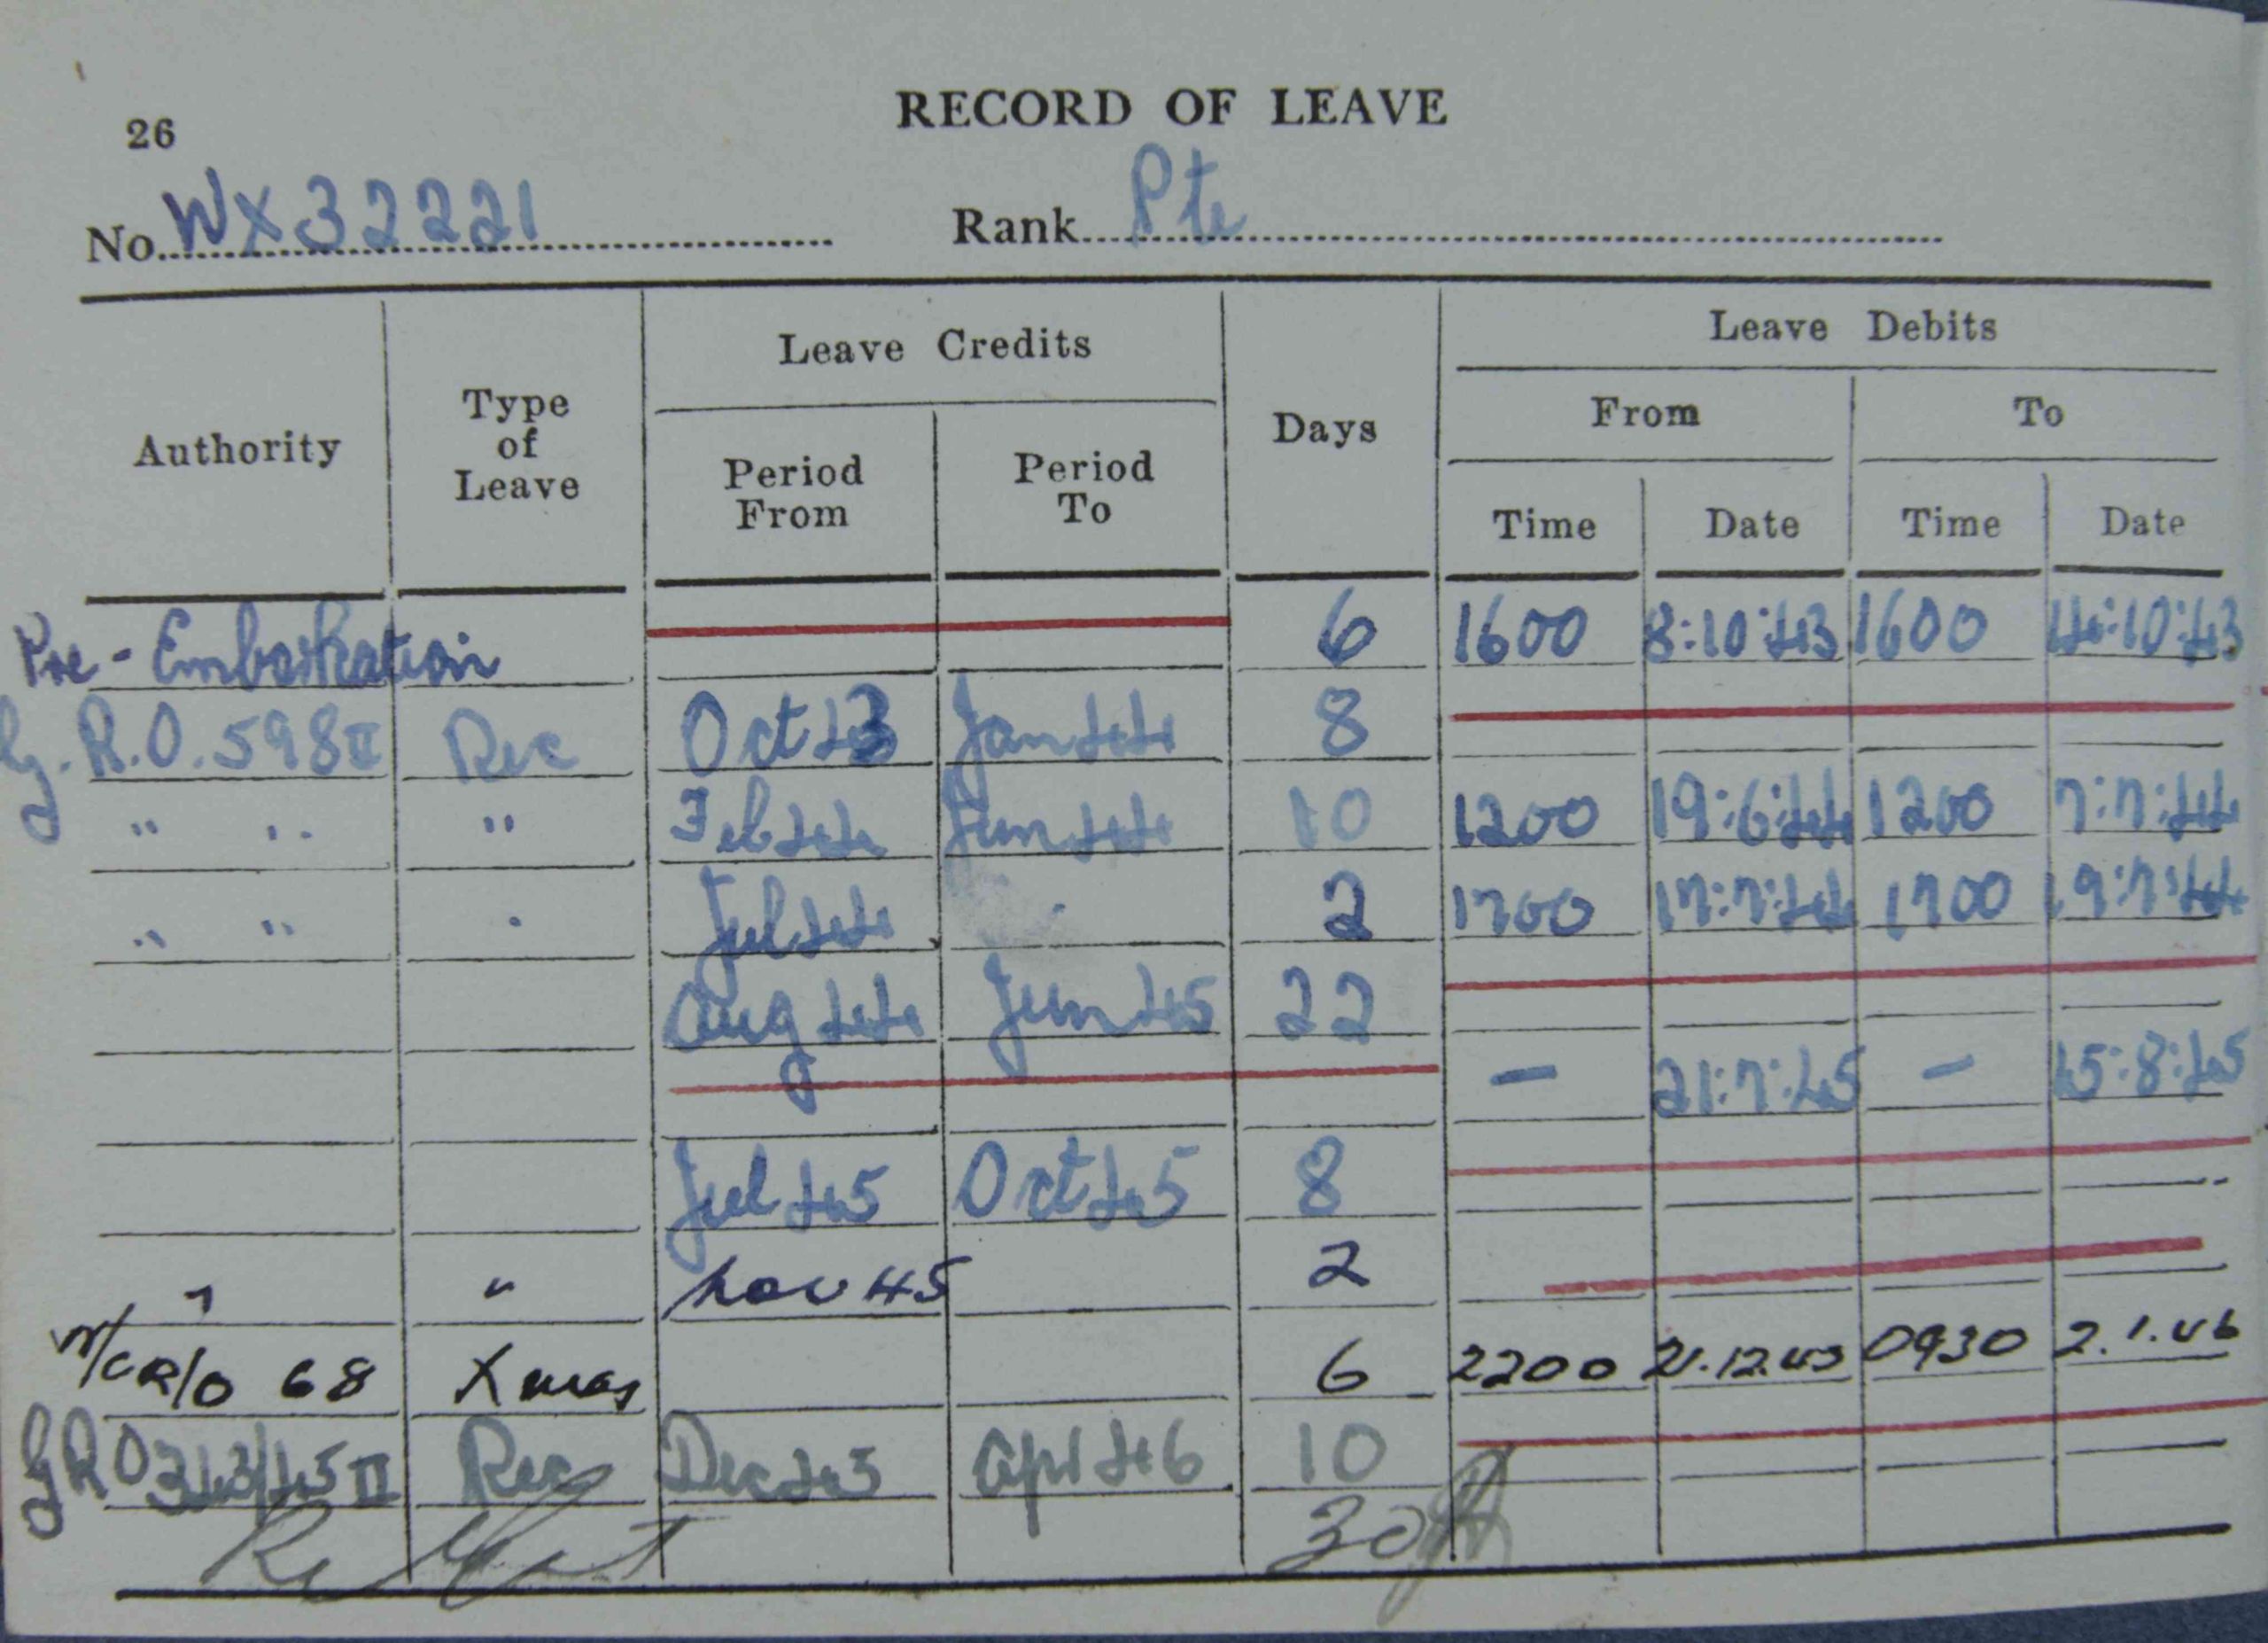 26
RECORD OF LEAVE
No. WX32221 Rank Pte
Authority Type of Leave Leave Credits Days Leave Debits
Period From Period To From To
Time Date Time Date
Pre-Embarkation 6 1600 8:10:43 1600 14:10:43
G.R.O. 598 II Rec Oct 43 Jan 44 8
" " " Feb 44 Jun 44 10 1200 19:6:44 1200 7:7:44
" " " Jul 44 2 1700 17:7:44 1700 19:7:44
Aug 44 Jun 45 22
- 21:7:45 - 15:8:45
Jul 45 Oct 45 8
" " Nov 45 2
R/O 68 Xmas 6 2200 21.12.45 0930 2.1.46
GRO 343/45 II Rec Dec 45 Apl 46 10
30